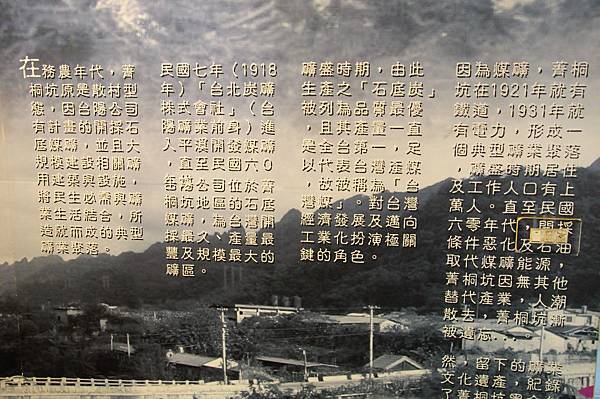 在務農年代，菁
桐坑原是散村型
態，因台陽公司
有計畫的開採石
底煤礦，並且大
規模建設相關礦
用建築與設施，
將民生必需與礦
業生活結合，所
造就而成的典型
礦業聚落。
民國七年（1918
年）「台北炭礦
株式會社」（台
陽礦業前身）進
入平溪開發煤礦
，直至民國六０
年台陽公司位於菁
桐坑地區的石底
煤礦，為台灣開
採最久、產量最
豐及規模最大的
礦區。
礦盛時期，由此
生產之「石底炭」
被列為品質最優
，且其產量一直
是全台第一，足
以代表台灣產煤
，故被稱為「台
灣煤」。對台灣
經濟發展及邁向
工業化扮演極關
鍵的角色。
因為煤礦，菁桐
坑在1921年就有
鐵道，1931年就
有電力，形成一
個典型礦業聚落
，礦盛時期居住
及工作人口有上
萬人。直至民國
六零年代，開採
條件惡化及石油
取代煤礦能源，
菁桐坑因無其他
替代產業，人潮
散去，菁桐坑漸
被遺忘....。
然，留下的礦業
文化遺產，紀錄
了菁桐坑